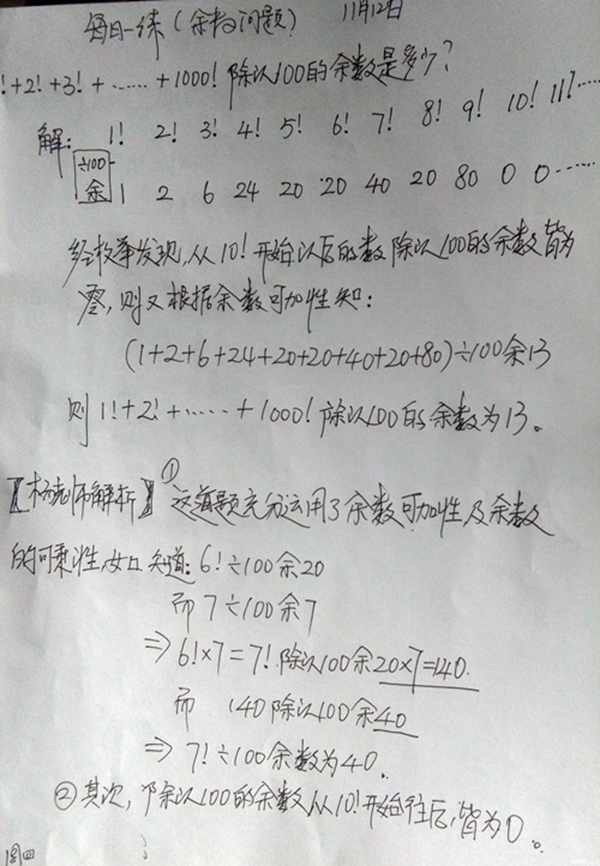 每日一练(余数问题) 11月12日
!+2!+3!+……+1000!除以100的余数是多少?
解: 1! 2! 3! 4! 5! 6! 7! 8! 9! 10! 11!……
÷100
余 1 2 6 24 20 20 40 20 80 0 0……
经枚举发现,从10!开始以后的数除以100的余数皆为
零,则又根据余数可加性知:
(1+2+6+24+20+20+40+20+80)÷100余13
则1!+2!+……+1000!除以100的余数为13。
【杨老师解析】①这道题充分运用了余数可加性及余数
的可乘性,如知道:6!÷100余20
而7÷100余7
⇒6!×7=7!除以100余20×7=140.
而 140除以100余40
⇒7!÷100余数为40.
②其次,除以100的余数从10!开始往后,皆为0。
周四